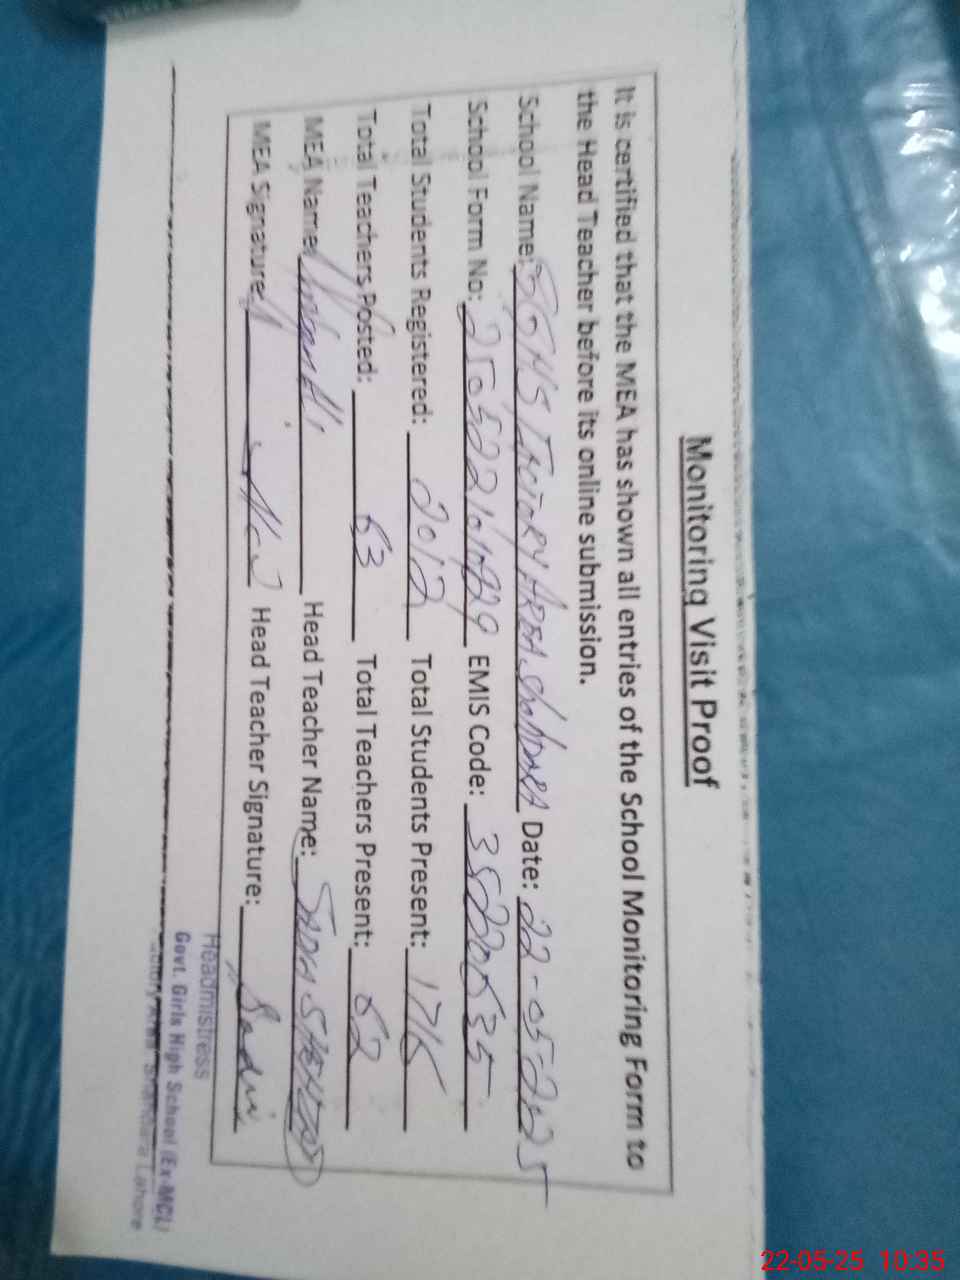 Monitoring Visit Proof
It is certified that the MEA has shown all entries of the School Monitoring Form to
the Head Teacher before its online submission.
School Name: GGHS FACTORY AREA SHAHDARA Date: 22-05-2025
School Form No: EMIS Code:
Total Students Registered: 2012 Total Students Present:
Total Teachers Posted: 63 Total Teachers Present: 62
MEA Name: Head Teacher Name:
MEA Signature: Head Teacher Signature: Sadia
Headmistress
Govt. Girls High School (Ex-MCL)
Factory Area Shahdara Lahore
22-05-25 10:35